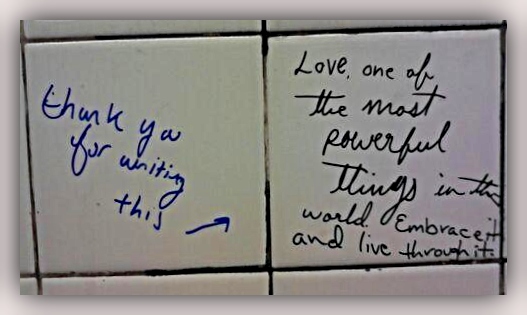 thank you
for writing
this →
Love, one of
the most
powerful
things in this
world. Embrace it
and live through it.